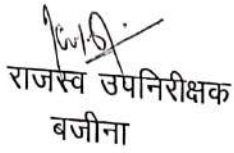 राजस्व उपनिरीक्षक
बजीना